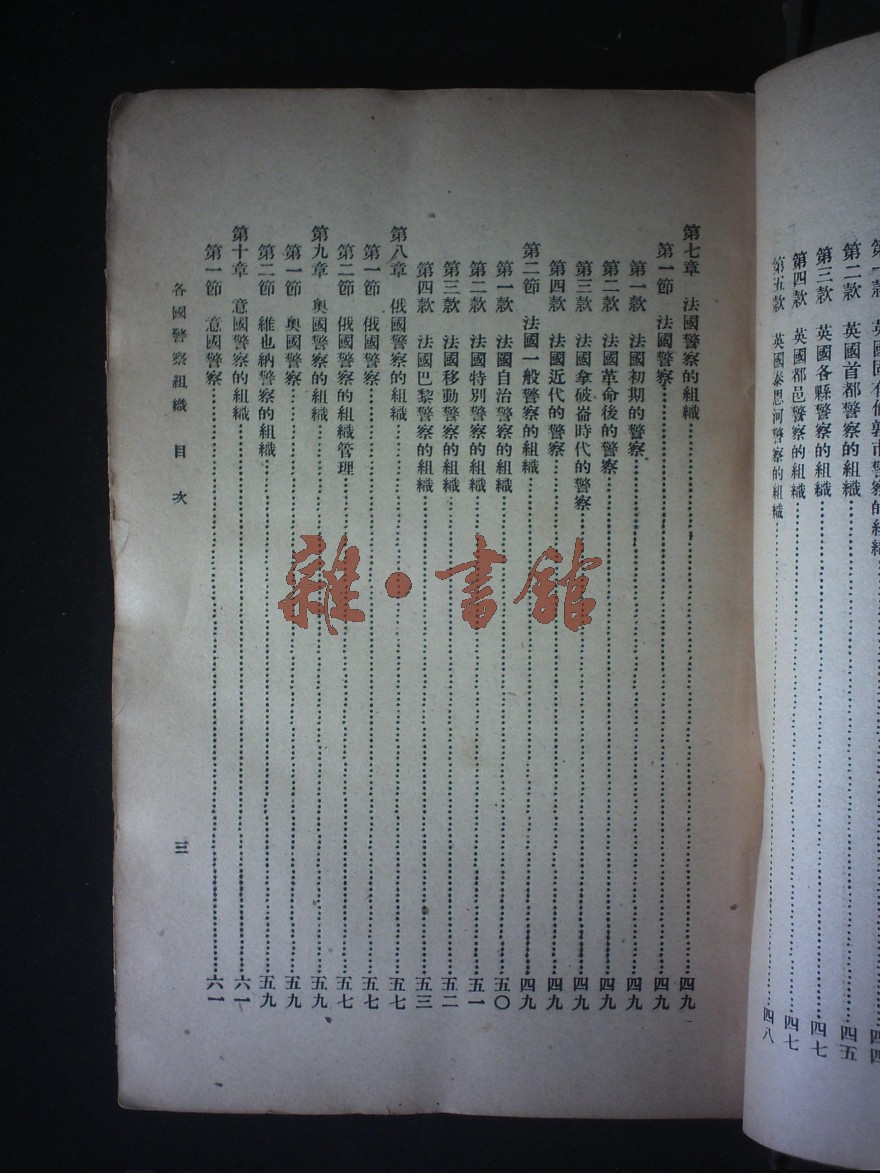 第二款　英國首都警察的組織……四五
第三款　英國各縣警察的組織……四七
第四款　英國都邑警察的組織……四七
第五款　英國泰恩河警察的組織……四八
第七章　法國警察的組織……四九
第一節　法國警察……四九
第一款　法國初期的警察……四九
第二款　法國革命後的警察……四九
第三款　法國拿破崙時代的警察……四九
第四款　法國近代的警察……四九
第二節　法國一般警察的組織……四九
第一款　法國自治警察的組織……五〇
第二款　法國特別警察的組織……五一
第三款　法國移動警察的組織……五二
第四款　法國巴黎警察的組織……五三
第八章　俄國警察的組織……五七
第一節　俄國警察……五七
第二節　俄國警察的組織管理……五七
第九章　奧國警察的組織……五九
第一節　奧國警察……五九
第二節　維也納警察的組織……五九
第十章　意國警察的組織……六一
第一節　意國警察……六一
各國警察組織　目次　三
雜·書館